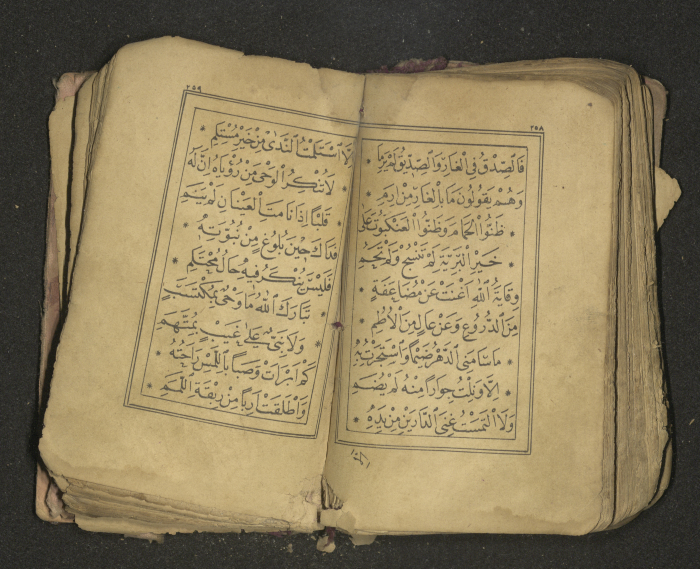 ٢٥٨
فَالصِّدْقُ فِي الْغَارِ وَالصِّدِّيقُ لَمْ يَرِمَا *
وَهُمْ يَقُولُونَ مَا بِالْغَارِ مِنْ اَرِمِ *
ظَنُّوا الْحَمَامَ وَظَنُّوا الْعَنْكَبُوتَ عَلٰى *
خَيْرِ الْبَرِيَّةِ لَمْ تَنْسُجْ وَلَمْ تَحُمِ *
وِقَايَةُ اللّٰهِ اَغْنَتْ عَنْ مُضَاعَفَةٍ *
مِنَ الدُّرُوعِ وَعَنْ عَالٍ مِنَ الْاُطُمِ *
مَا سَامَنِي الدَّهْرُ ضَيْمًا وَاسْتَجَرْتُ بِهِ *
اِلَّا وَنِلْتُ جِوَارًا مِنْهُ لَمْ يُضَمِ *
وَلَا الْتَمَسْتُ غِنَى الدَّارَيْنِ مِنْ يَدِهِ *
٢٥٩
اِلَّا اسْتَلَمْتُ النَّدٰى مِنْ خَيْرِ مُسْتَلَمِ *
لَا تُنْكِرُ الْوَحْيَ مِنْ رُؤْيَاهُ اِنَّ لَهُ
قَلْبًا اِذَا نَامَتِ الْعَيْنَانِ لَمْ يَنَمِ *
فَذَاكَ حِينَ بُلُوغٍ مِنْ نُبُوَّتِهِ *
فَلَيْسَ يُنْكَرُ فِيهِ حَالُ مُحْتَلِمِ *
تَبَارَكَ اللّٰهُ مَا وَحْيٌ بِمُكْتَسَبٍ *
وَلَا نَبِيٌّ عَلٰى غَيْبٍ بِمُتَّهَمِ *
كَمْ اَبْرَاَتْ وَصِبًا بِاللَّمْسِ رَاحَتُهُ *
وَاَطْلَقَتْ اَرِبًا مِنْ رِبْقَةِ اللَّمَمِ *